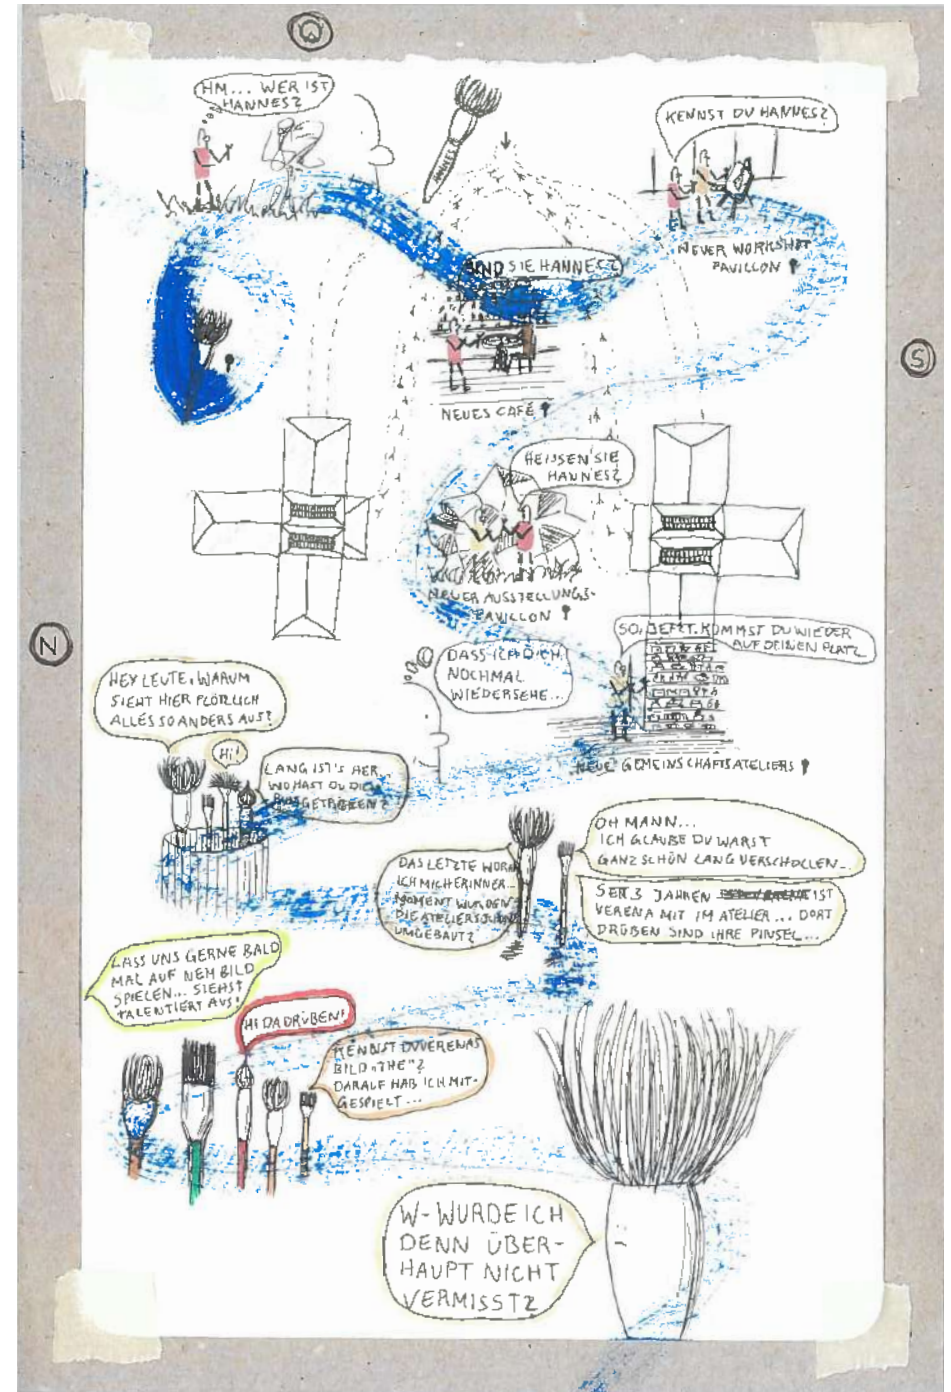 W
HM... WER IST
HANNES?
HANNES
KENNST DU HANNES?
NEUER WORKSHOP
PAVILLON
SIND SIE HANNES?
S
NEUES CAFÉ
HEISSEN SIE
HANNES?
NEUER AUSSTELLUNGS-
PAVILLON
N
SO, JETZT KOMMST DU WIEDER
AUF DEINEN PLATZ
DASS ICH DICH
NOCHMAL
WIEDERSEHE...
NEUE GEMEINSCHAFTSATELIERS
HEY LEUTE, WARUM
SIEHT HIER PLÖTZLICH
ALLES SO ANDERS AUS?
HI!
LANG IST'S HER...
WO HAST DU DICH
RUMGETRIEBEN?
OH MANN...
ICH GLAUBE DU WARST
GANZ SCHÖN LANG VERSCHOLLEN...
DAS LETZTE WORAN
ICH MICH ERINNER...
MOMENT WURDEN
DIE ATELIERS
UMGEBAUT?
SEIT 3 JAHREN IST
VERENA MIT IM ATELIER... DORT
DRÜBEN SIND IHRE PINSEL...
LASS UNS GERNE BALD
MAL AUF NEM BILD
SPIELEN... SIEHST
TALENTIERT AUS!
HI DADRÜBEN!
KENNST DU VERENAS
BILD „THE"?
DARAUF HAB ICH MIT-
GESPIELT...
W-WURDE ICH
DENN ÜBER-
HAUPT NICHT
VERMISST?